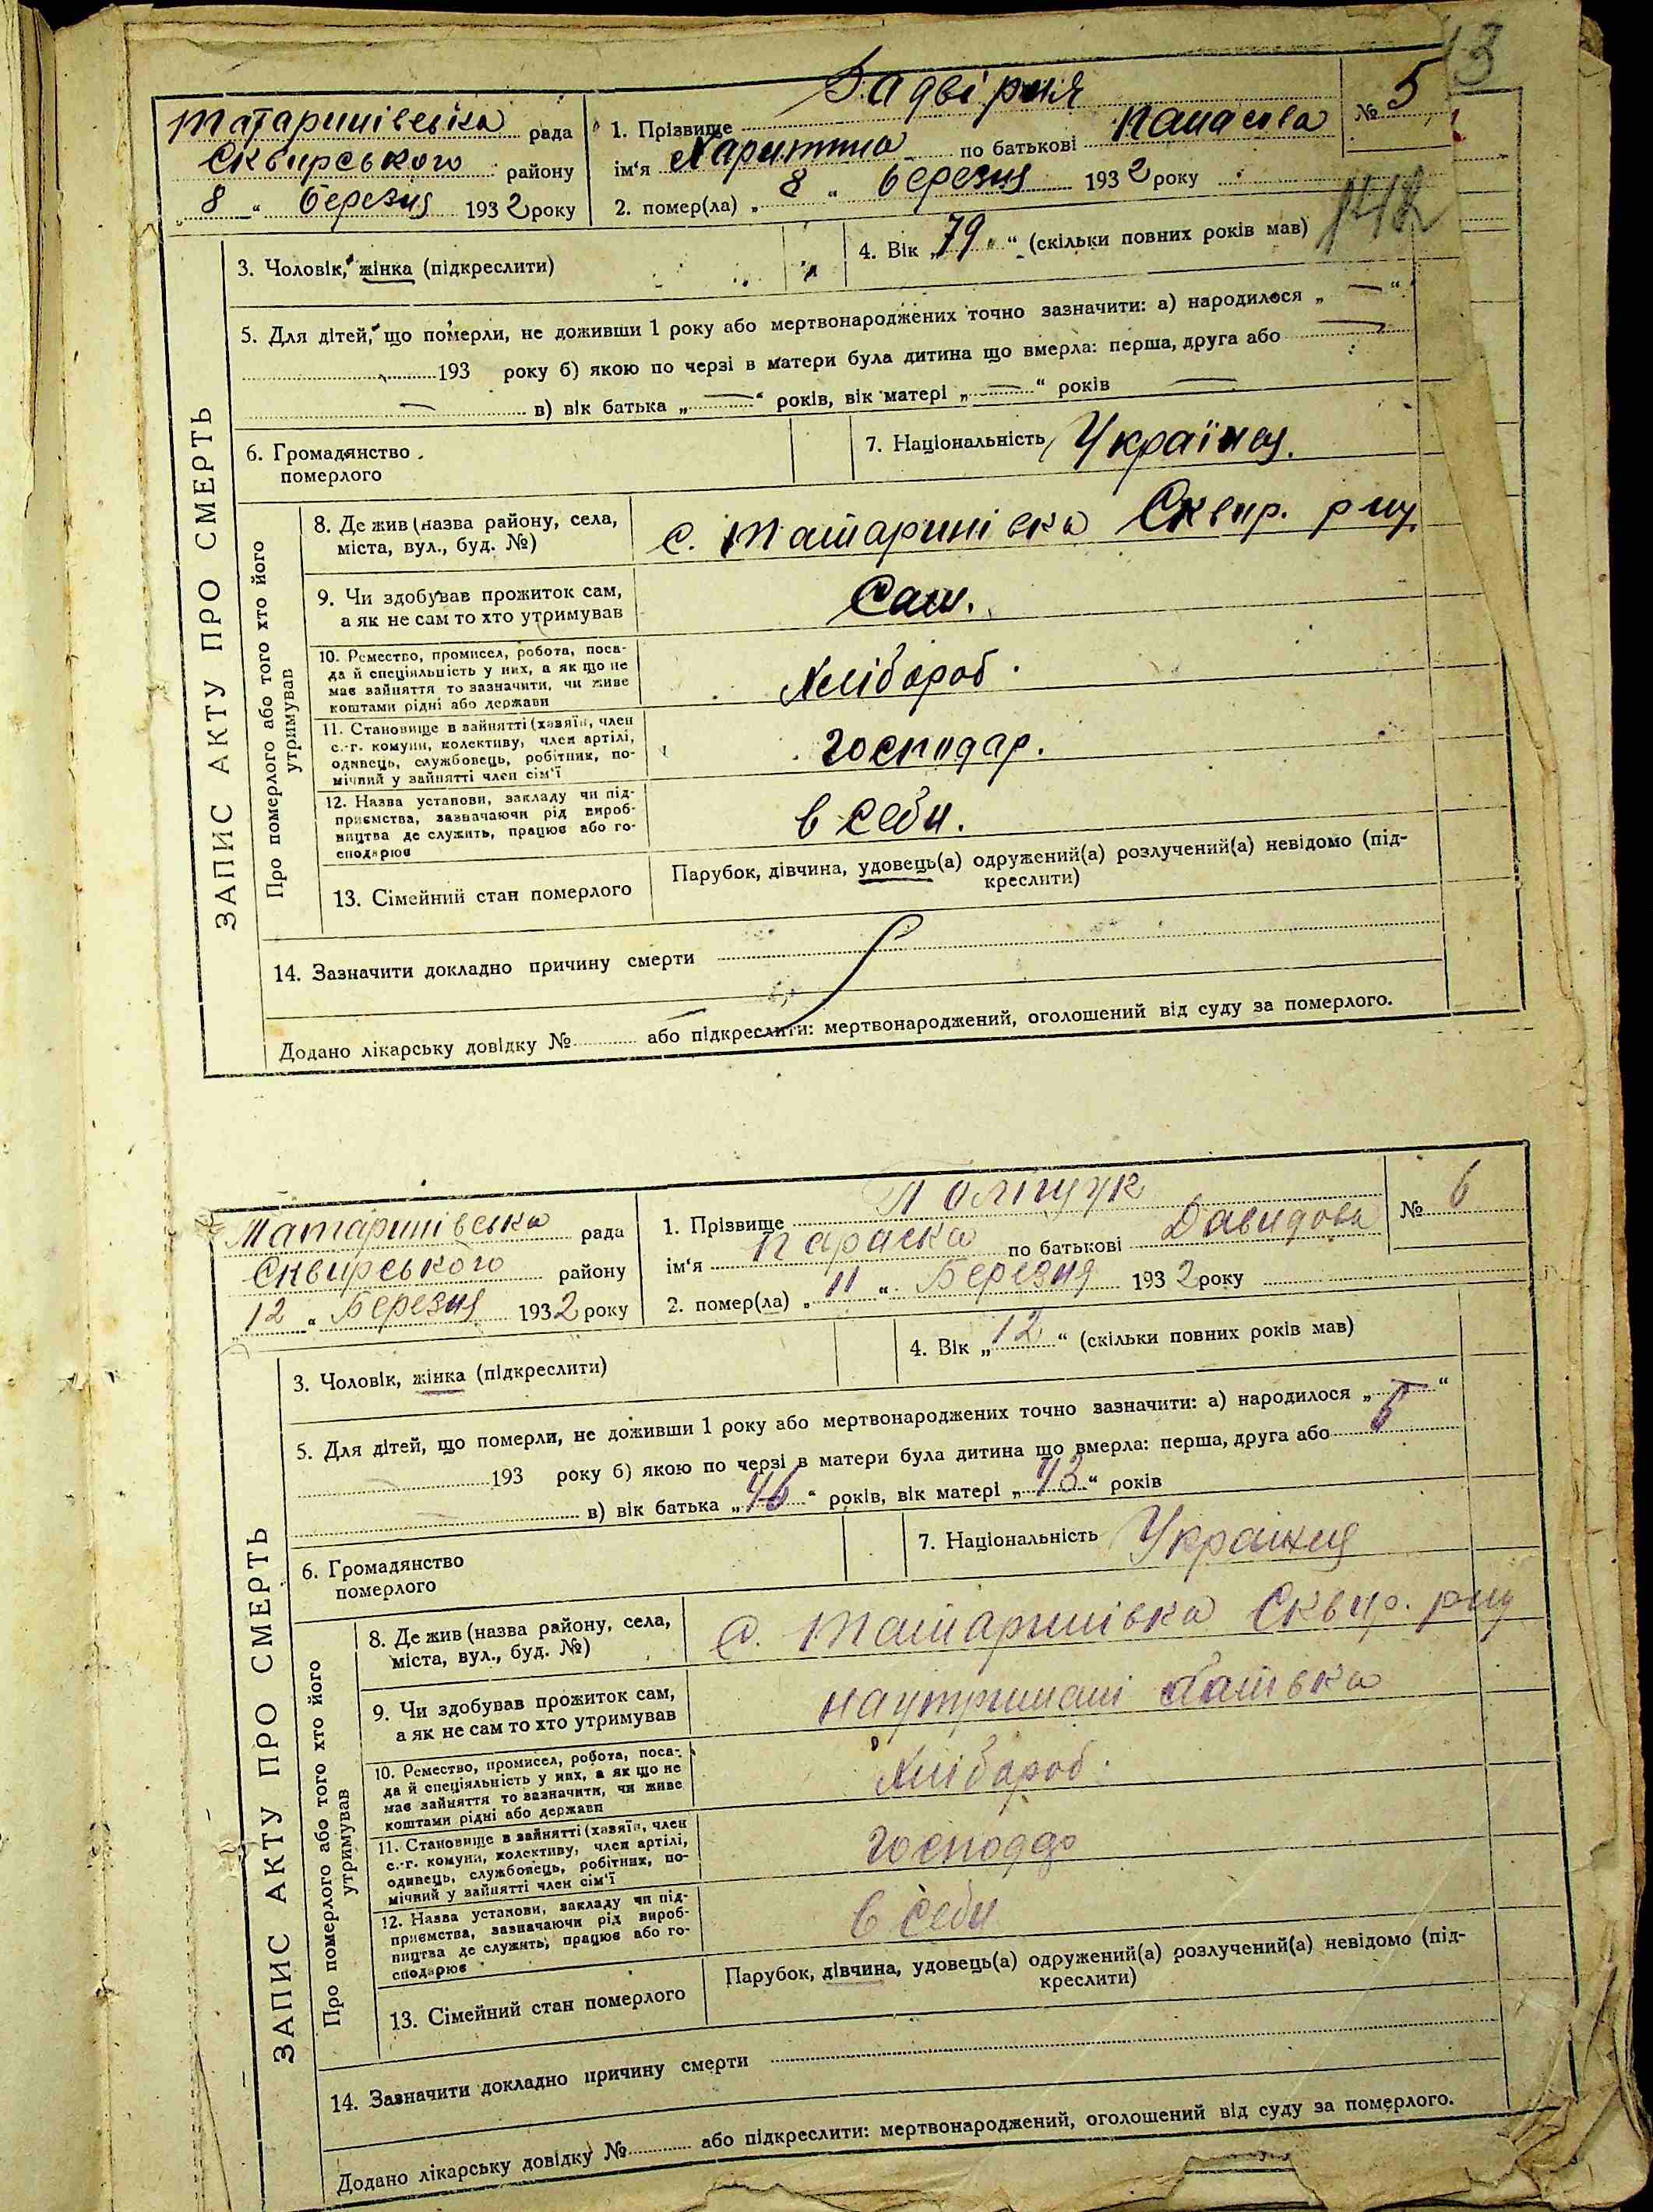 13
Татаринівська рада
Сквирського району
„ 8 “ березня 1932 року
1. Прізвище Задвірня
ім‘я Харитина по батькові Панасова
2. помер(ла) „ 8 “ березня 1932 року
№ 5
ЗАПИС АКТУ ПРО СМЕРТЬ
3. Чоловік, жінка (підкреслити)
4. Вік „ 79 “ (скільки повних років мав)
5. Для дітей, що померли, не доживши 1 року або мертвонароджених точно зазначити: а) народилося „ — “
193 року б) якою по черзі в матери була дитина що вмерла: перша, друга або —
— в) вік батька „ — “ років, вік матері „ — “ років —
6. Громадянство
померлого
7. Національність Українця.
Про померлого або того хто його
утримував
8. Де жив (назва району, села,
міста, вул., буд. №)
с. Татаринівка Сквир. р-ну.
9. Чи здобував прожиток сам,
а як не сам то хто утримував
Сам.
10. Ремество, промисел, робота, поса-
да й спеціяльність у них, а як що не
має зайняття то зазначити, чи живе
коштами рідні або держави
Хлібороб.
11. Становище в зайнятті (хазяїн, член
с.-г. комуни, колективу, член артілі,
одинець, службовець, робітник, по-
мічний у зайнятті член сім‘ї
господар.
12. Назва установи, закладу чи під-
приємства, зазначаючи рід вироб-
ництва де служить, працює або го-
сподарює
в себи.
13. Сімейний стан померлого
Парубок, дівчина, удовець(а) одружений(а) розлучений(а) невідомо (під-
креслити)
14. Зазначити докладно причину смерти
Додано лікарську довідку № — або підкреслити: мертвонароджений, оголошений від суду за померлого.
Татаринівська рада
Сквирського району
„ 12 “ Березня 1932 року
1. Прізвище Поліщук
ім‘я Параска по батькові Давидова
2. помер(ла) „ 11 “ Березня 1932 року
№ 6
ЗАПИС АКТУ ПРО СМЕРТЬ
3. Чоловік, жінка (підкреслити)
4. Вік „ 12 “ (скільки повних років мав)
5. Для дітей, що померли, не доживши 1 року або мертвонароджених точно зазначити: а) народилося „ — “
193 року б) якою по черзі в матери була дитина що вмерла: перша, друга або
в) вік батька „ 46 “ років, вік матері „ 43 “ років
6. Громадянство
померлого
7. Національність Українця
Про померлого або того хто його
утримував
8. Де жив (назва району, села,
міста, вул., буд. №)
с. Татаринівка Сквир. р-ну
9. Чи здобував прожиток сам,
а як не сам то хто утримував
на утримані батька
10. Ремество, промисел, робота, поса-
да й спеціяльність у них, а як що не
має зайняття то зазначити, чи живе
коштами рідні або держави
Хлібороб.
11. Становище в зайнятті (хазяїн, член
с.-г. комуни, колективу, член артілі,
одинець, службовець, робітник, по-
мічний у зайнятті член сім‘ї
12. Назва установи, закладу чи під-
приємства, зазначаючи рід вироб-
ництва де служить, працює або го-
сподарює
в себи
13. Сімейний стан померлого
Парубок, дівчина, удовець(а) одружений(а) розлучений(а) невідомо (під-
креслити)
14. Зазначити докладно причину смерти
Додано лікарську довідку № або підкреслити: мертвонароджений, оголошений від суду за померлого.